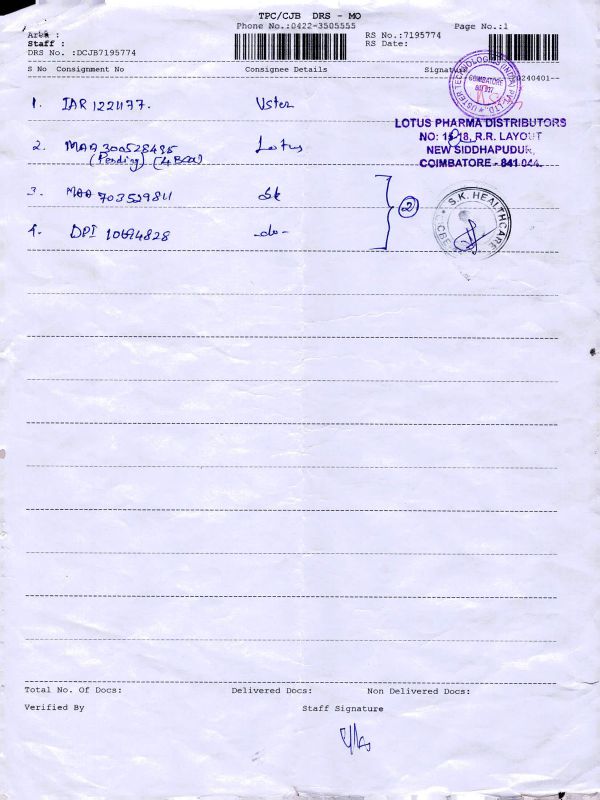 TPC/CJB DRS - MO
Phone No.:0422-3505555 Page No.:1
Area :
Staff : RS No.:7195774
DRS No. :DCJB7195774 RS Date:
S No Consignment No Consignee Details Signature
20240401--
USTER TECHNOLOGIES (INDIA) PVT. LTD.
COIMBATORE
1. IAR 1221177. Uster
LOTUS PHARMA DISTRIBUTORS
NO: 18, R.R. LAYOUT
NEW SIDDHAPUDUR,
COIMBATORE - 641 044.
2. MAA 300528495 Lotus
(Pending) (4 Box)
3. MAA 703529811 Sk
4. DPI 10694828 -do-
2
S.K. HEALTHCARE
CBE
Total No. Of Docs: Delivered Docs: Non Delivered Docs:
Verified By Staff Signature